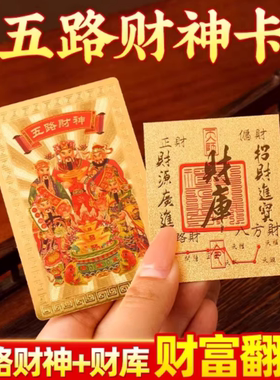 五路财神卡
五路财神
大人師
正財
偏財
招財進寶
財庫
正財源廣進
八方財
路财神+财库 财富翻